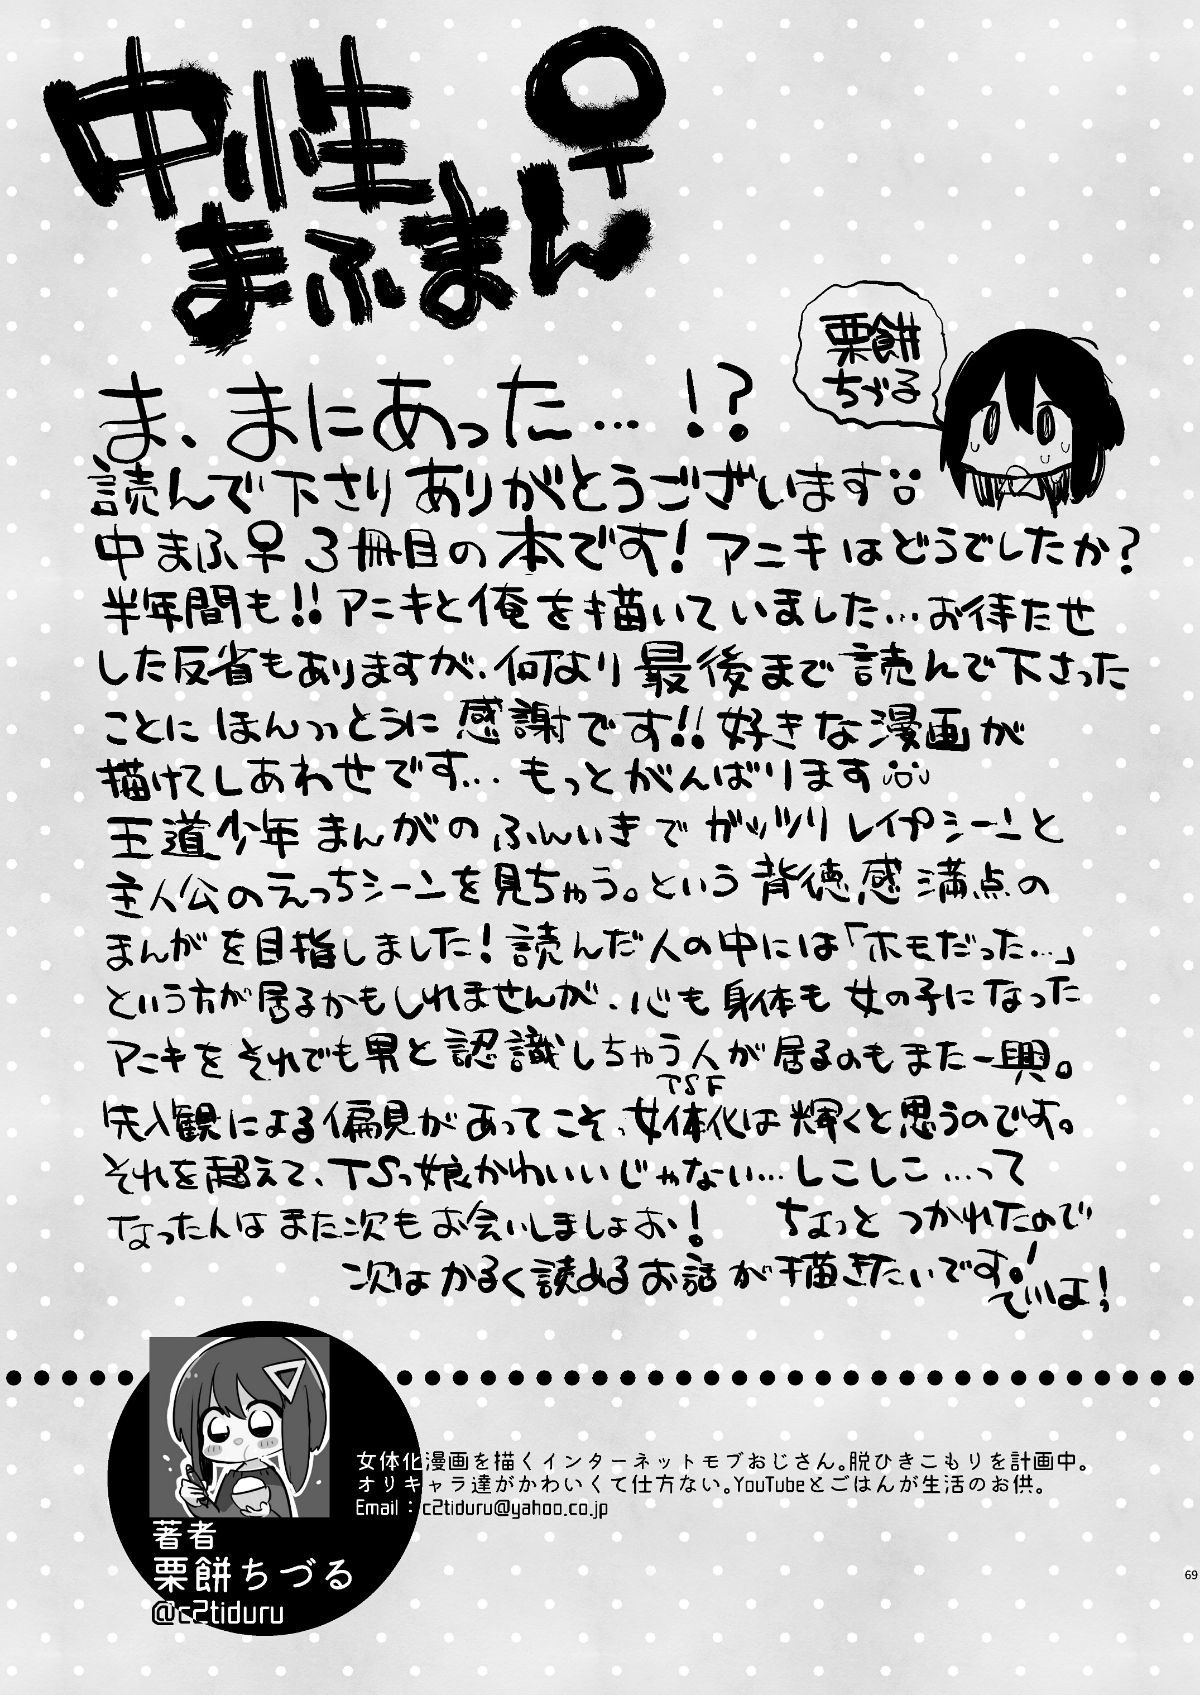 中性
まふまん♀
栗餅
ちづる
ま、まにあった…!?
読んで下さりありがとうございます
中まふ♀3冊目の本です!アニキはどうでしたか?
半年間も!!アニキと俺を描いていました…お待たせ
した反省もありますが、何より最後まで読んで下さった
ことにほんっっとうに感謝です!!好きな漫画が
描けてしあわせです…もっとがんばります
王道少年まんがのふんいきでガッツリレイプシーンと
主人公のえっちシーンを見ちゃう。という背徳感満点の
まんがを目指しました!読んだ人の中には「ホモだった…」
という方が居るかもしれませんが、心も身体も女の子になった
アニキをそれでも男と認識しちゃう人が居るのもまた一興。
TSF
先入観による偏見があってこそ、女体化は輝くと思うのです。
それを超えて、TSっ娘かわいいじゃない…しこしこ…って
なったんはまた次もお会いしましょお! ちょっとつかれたので
次はかるく読めるお話が描きたいです!
でいはよ!
女体化漫画を描くインターネットモブおじさん。脱ひきこもりを計画中。
オリキャラ達がかわいくて仕方ない。YouTubeとごはんが生活のお供。
Email:c2tiduru@yahoo.co.jp
著者
栗餅ちづる
@c2tiduru
69